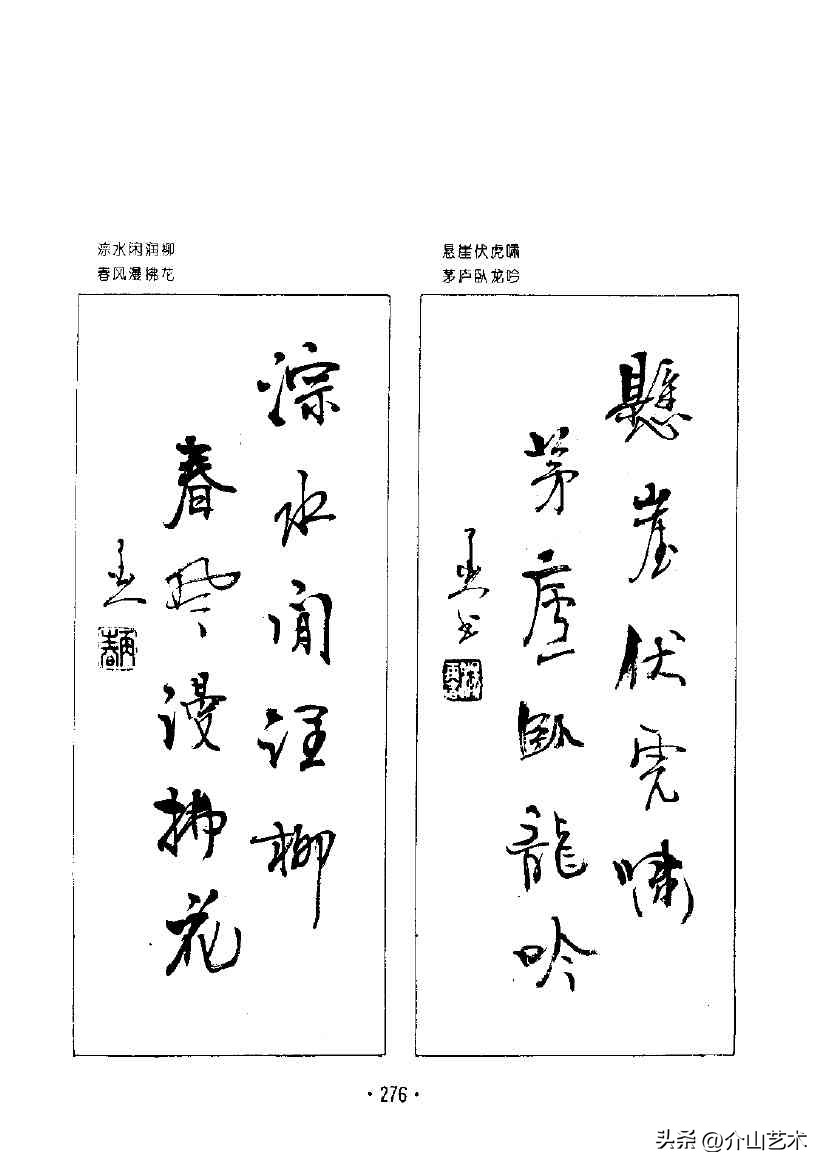 淙水闲润柳
春风漫拂花
悬崖伏虎啸
茅庐卧龙吟
懸崖伏虎嘯
茅廬臥龍吟
淙水閒潤柳
春風漫拂花
·276·
头条@介山艺术